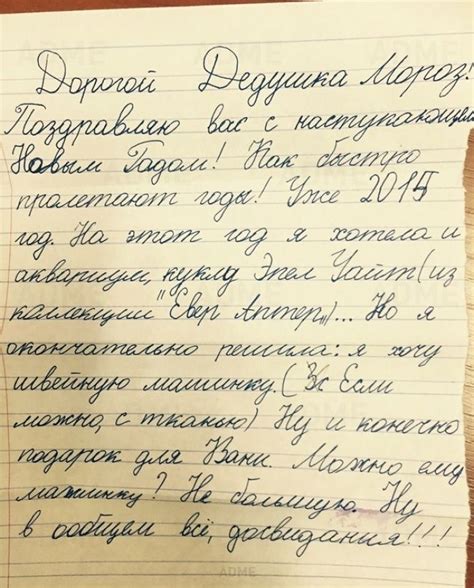 Дорогой Дедушка Мороз!
Поздравляю вас с наступающем
Новым Годом! Как быстро
пролетают годы! Уже 2015
год. На этот год я хотела и
аквариум, куклу Эпел Уайт (из
коллекции "Евер Аптер")... Но я
окончательно решила: я хочу
швейную машинку. (Если
можно, с тканью) Ну и конечно
подарок для Вани. Можно ему
машинку? Не большую. Ну
в ообщем всё, досвидания!!!
ADME
ADME